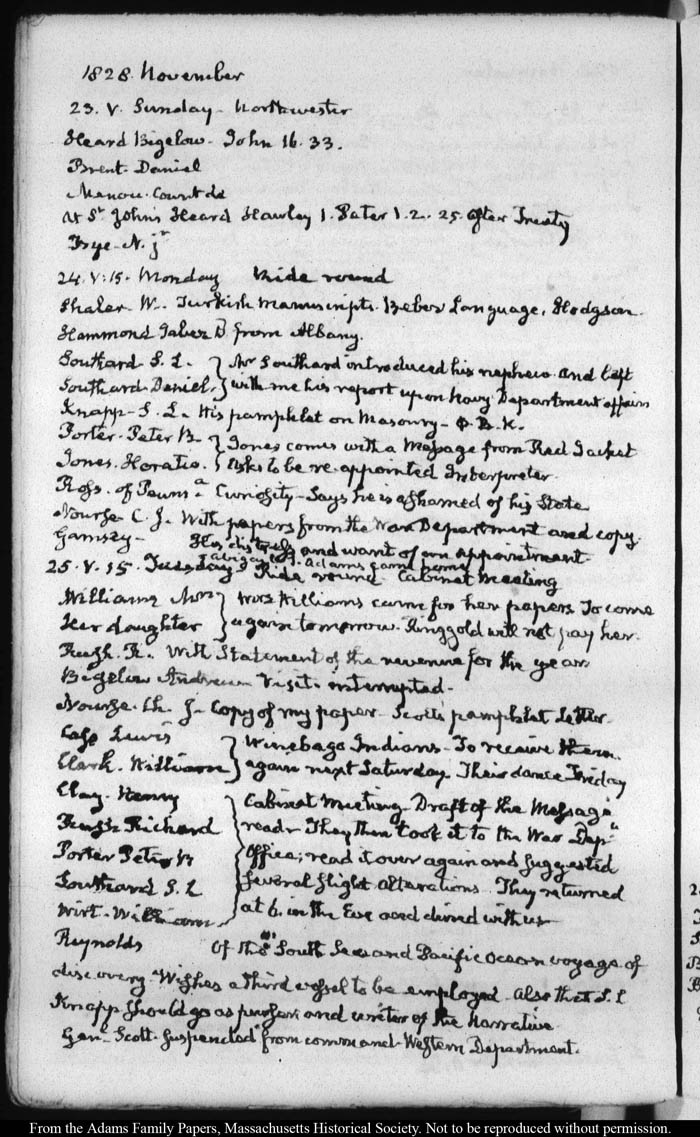 1828. November
23. V. Sunday - Northwester
Heard Bigelow - John 16. 33.
Brent. Daniel
Menou. Count de
At St. Johns Heard Hawley 1. Peter 1. 2. 25. after Treaty
Frye - N. jr
24. V:15. Monday Ride round
Shaler W. Turkish Manuscripts. Beber Language, Hodgson.
Hammond Jabez D from Albany.
Southard S. L. } Mr Southard introduced his nephew and left
Southard Daniel. } with me his report upon Navy Department affairs
Knapp - S. L. His pamphlet on Masonry - Φ. B. K.
Porter. Peter B. } Jones comes with a Message from Red Jacket
Jones. Horatio. } Asks to be re-appointed Interpreter.
Ross. of Pennsa. Curiosity - Says he is ashamed of his State
Nourse C. J. With papers from the War Department and copy.
Gamsey - His distress and want of an appointment.
Abigail S. Adams came home
25. V. 15. Tuesday Ride round. Cabinet Meeting
Williams Mrs } Mrs Williams came for her papers To come
Her daughter } again tomorrow. Ringgold will not pay her.
Rush. R. With Statement of the revenue for the year
Bigelow Andrew Visit. interrupted -
Nourse. Ch. J - Copy of my paper - Scott's pamphlet Letter.
Cass Lewis } Winebago Indians - To receive them
Clark. William } again next Saturday. Their dance Friday
Clay. Henry } Cabinet Meeting. Draft of the Message
Rush Richard } read - They then took it to the War Dept
Porter Peter B } Office; read it over again and suggested
Southard S. L } several slight alterations. They returned
Wirt - William } at 6. in the Eve and dined with us
Reynolds Of the South Sea and Pacific Ocean voyage of
discovery - Wishes a third vessel to be employed. Also that S. L
Knapp should go as purser and writer of the Narrative.
Genl Scott. suspended from command - Western Department.
From the Adams Family Papers, Massachusetts Historical Society. Not to be reproduced without permission.